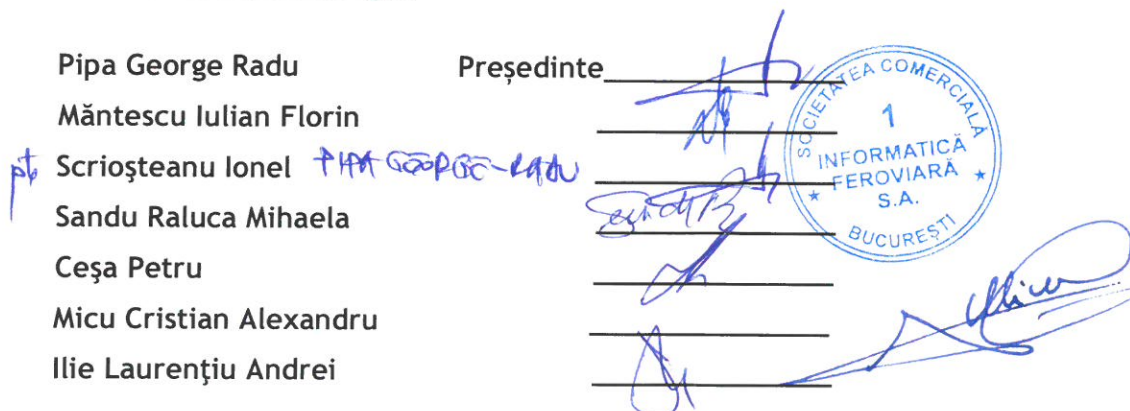 Pipa George Radu Președinte
Măntescu Iulian Florin
pt Scrioşteanu Ionel PIPA GEORGE-RADU
Sandu Raluca Mihaela
Ceşa Petru
Micu Cristian Alexandru
Ilie Laurenţiu Andrei
SOCIETATEA COMERCIALĂ
1
INFORMATICĂ
FEROVIARĂ
S.A.
BUCUREŞTI